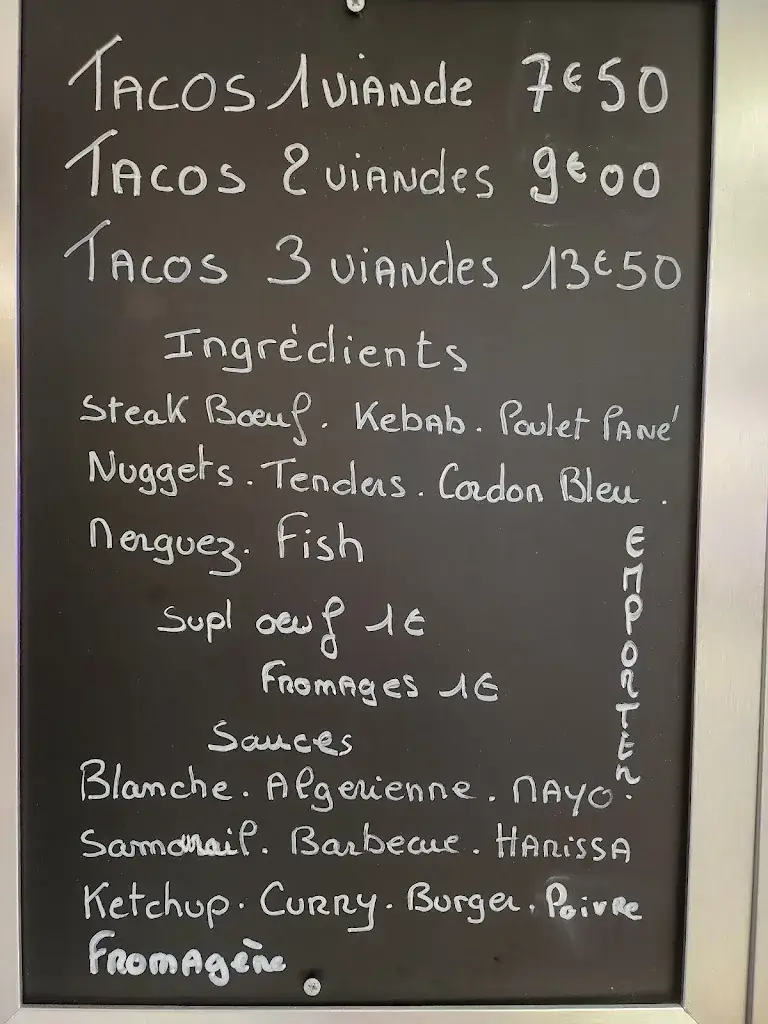 TACOS 1 VIANDE 7€50
TACOS 2 VIANDES 9€00
TACOS 3 VIANDES 13€50
Ingrédients
Steak Bœuf. Kebab. Poulet Pané
Nuggets. Tenders. Cordon Bleu.
Merguez. Fish
Supl oeuf 1€
Fromages 1€
Sauces
Blanche. Algerienne. MAYO.
Samourail. Barbecue. HARISSA
Ketchup. CURRY. Burger. Poivre
FROMAgère
EMPORTER